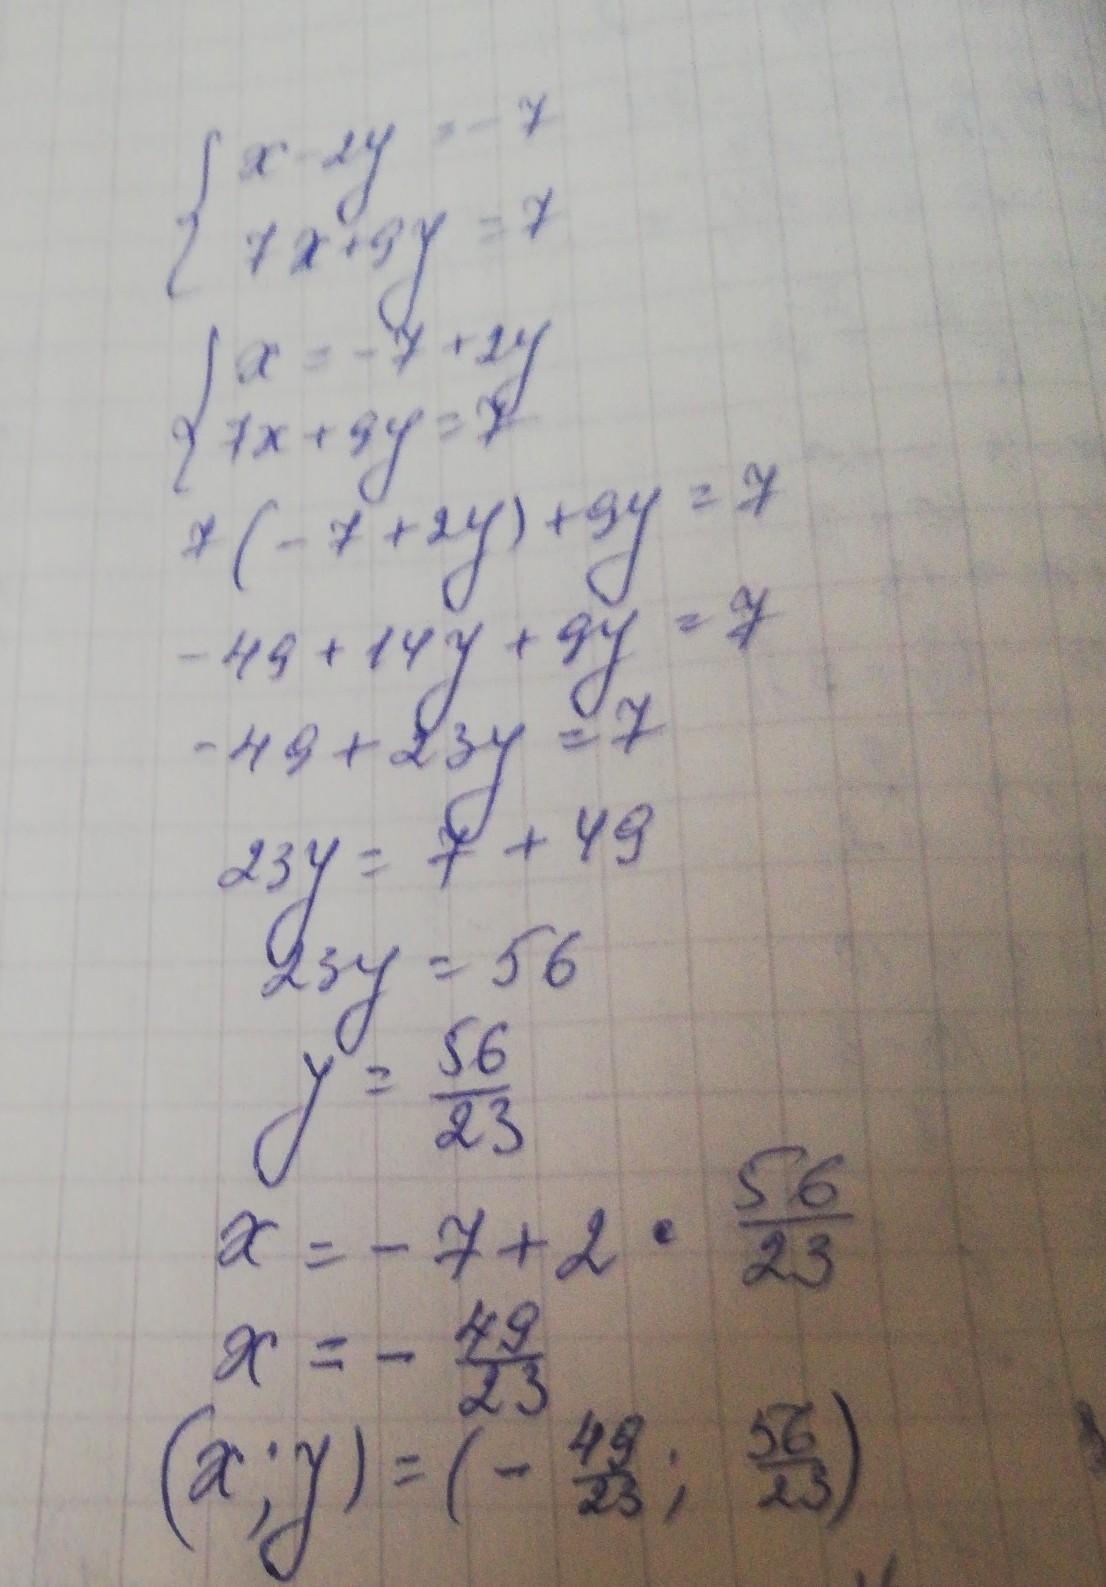 { x - 2y = -7
7x + 9y = 7
{ x = -7 + 2y
7x + 9y = 7
7(-7 + 2y) + 9y = 7
-49 + 14y + 9y = 7
-49 + 23y = 7
23y = 7 + 49
23y = 56
y = 56/23
x = -7 + 2 • 56/23
x = - 49/23
(x; y) = (- 49/23; 56/23)